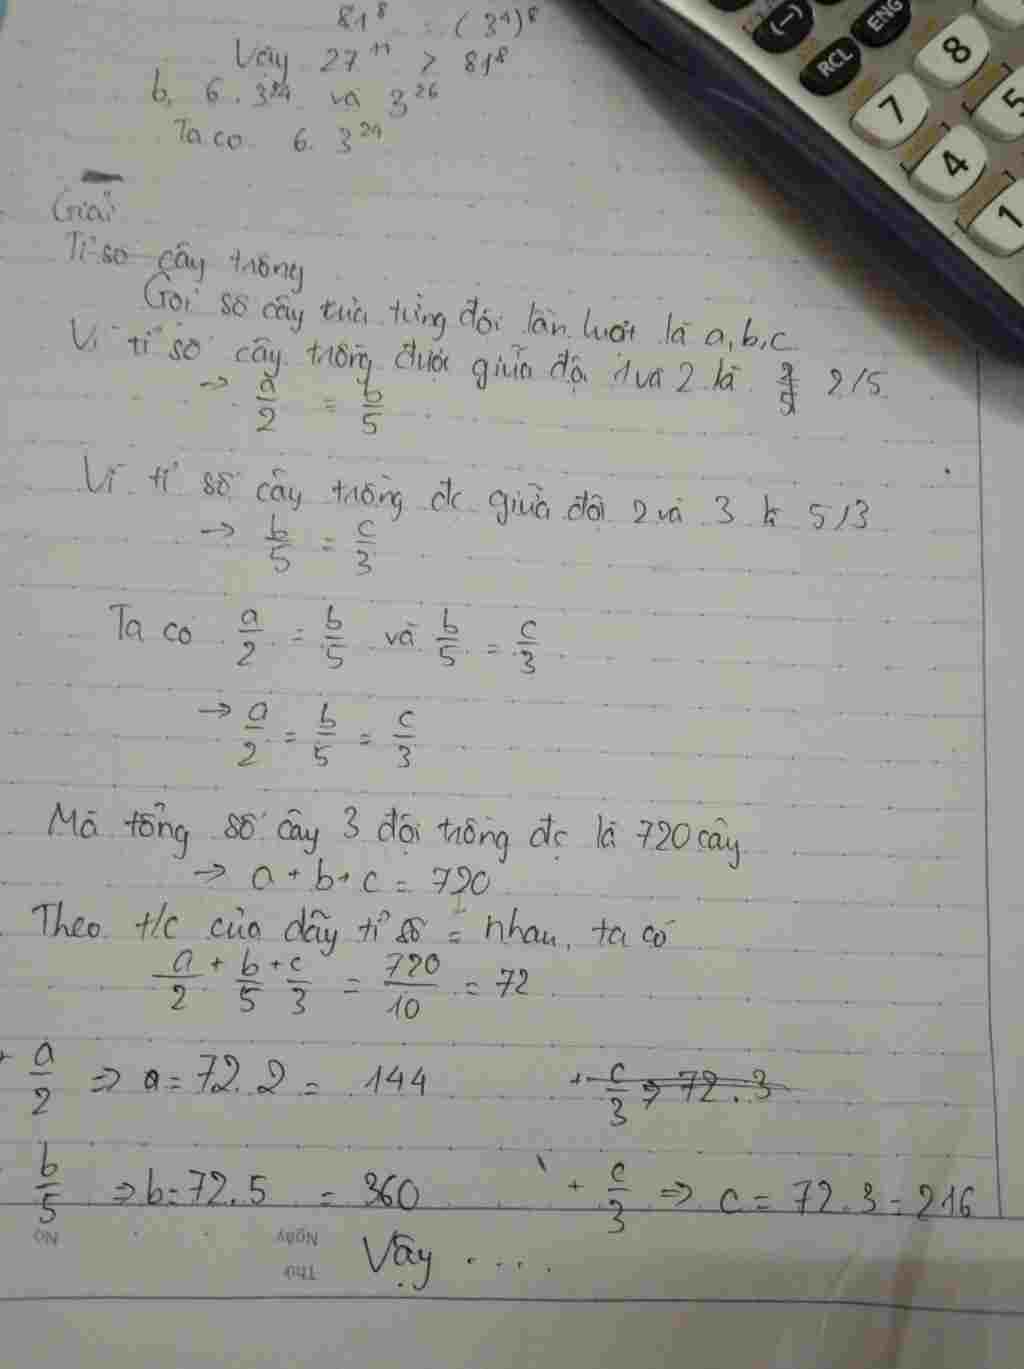 81⁸ = (3⁴)⁸
Vậy 27¹¹ > 81⁸
b, 6.3²⁴ và 3²⁶
Ta có 6.3²⁴
Giải
Tỉ số cây trồng
Gọi số cây của từng đội lần lượt là a,b,c
Vì tỉ số cây trồng được giữa đội 1 và 2 là 2/5
→ a/2 = b/5
Vì tỉ số cây trồng đc giữa đội 2 và 3 là 5/3
→ b/5 = c/3
Ta có a/2 = b/5 và b/5 = c/3
→ a/2 = b/5 = c/3
Mà tổng số cây 3 đội trồng đc là 720 cây
→ a + b + c = 720
Theo t/c của dãy tỉ số = nhau, ta có
a/2 + b/5 + c/3 = 720/10 = 72
+ a/2 ⇒ a = 72.2 = 144 + c/3 ⇒ 72.3
b/5 ⇒ b = 72.5 = 360 + c/3 ⇒ c = 72.3 = 216
No Ngày
Thứ
Vậy ....
RCL ENG (−) 7 8 4 5 1